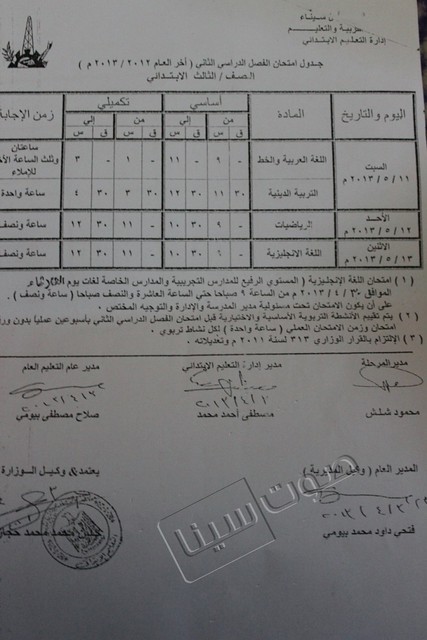 سيناء
إدارة التعليم الابتدائي
جدول امتحان الفصل الدراسي الثاني ( أخر العام ٢٠١٢ / ٢٠١٣ م )
الصف / الثالث الابتدائي
اليوم والتاريخ المادة أساسي تكميلي زمن الإجابة
من إلي من إلي
ق س ق س ق س ق س
السبت ٢٠١٣/٥/١١ م
اللغة العربية والخط - ٩ - ١١ - ١ - ٣ ساعتان وثلث الساعة للإملاء
التربية الدينية ٣٠ ١١ ٣٠ ١٢ ٣٠ ٣ ٣٠ ٤ ساعة واحدة
الأحد ٢٠١٣/٥/١٢ م الرياضيات - ٩ ٣٠ ١٠ - ١١ ٣٠ ١٢ ساعة ونصف
الاثنين ٢٠١٣/٥/١٣ م اللغة الانجليزية - ٩ ٣٠ ١٠ - ١١ ٣٠ ١٢ ساعة ونصف
( ١ ) امتحان اللغة الإنجليزية ( المستوي الرفيع للمدارس التجريبية والمدارس الخاصة لغات يوم الثلاثاء
الموافق ٣٠ / ٤ / ٢٠١٣ م من الساعة ٩ صباحا حتي الساعة العاشرة والنصف صباحا ( ساعة ونصف ) .
علي أن يكون الامتحان تحت مسئولية مدير المدرسة والإدارة والتوجيه المختص .
( ٢ ) يتم تقييم الأنشطة التربوية الأساسية والاختيارية قبل امتحان الفصل الدراسي الثاني بأسبوعين عمليا بدون
امتحان وزمن الامتحان العملي ( ساعة واحدة ) لكل نشاط تربوي .
( ٣ ) الإلتزام بالقرار الوزاري ٣١٣ لسنة ٢٠١١ م وتعديلاته .
مدير المرحلة مدير إدارة التعليم الابتدائي مدير عام التعليم العام
محمود شلش مصطفى أحمد محمد صلاح مصطفى بيومي
المدير العام ( وكيل المديرية ) يعتمد & وكيل الوزارة
فتحي داود محمد بيومي
صوت سينا